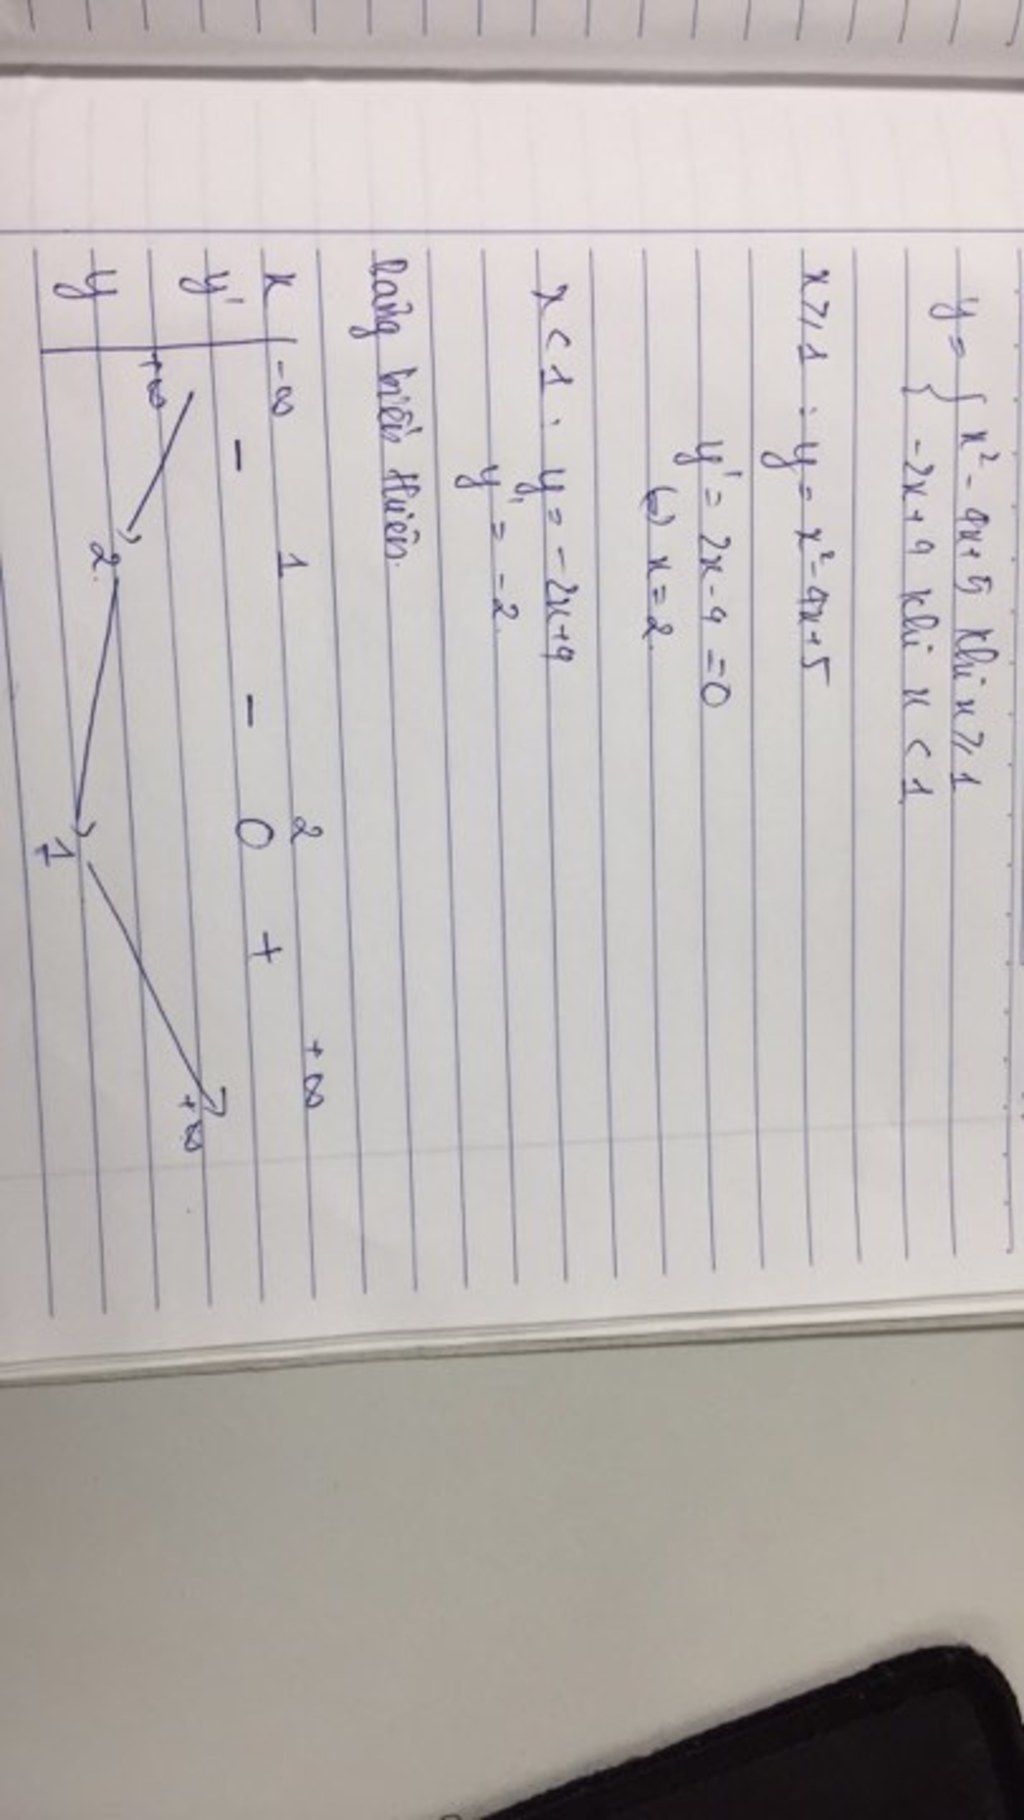 y = { x² - 4x + 5 khi x ⩾ 1
{ -2x + 4 khi x < 1
x ⩾ 1 : y = x² - 4x + 5
y' = 2x - 4 = 0
(=) x = 2.
x < 1 : y = -2x + 4
y' = -2.
Bảng biến thiên.
x | -∞ 1 2 +∞
y' - - 0 +
y +∞ 2. 1 +∞